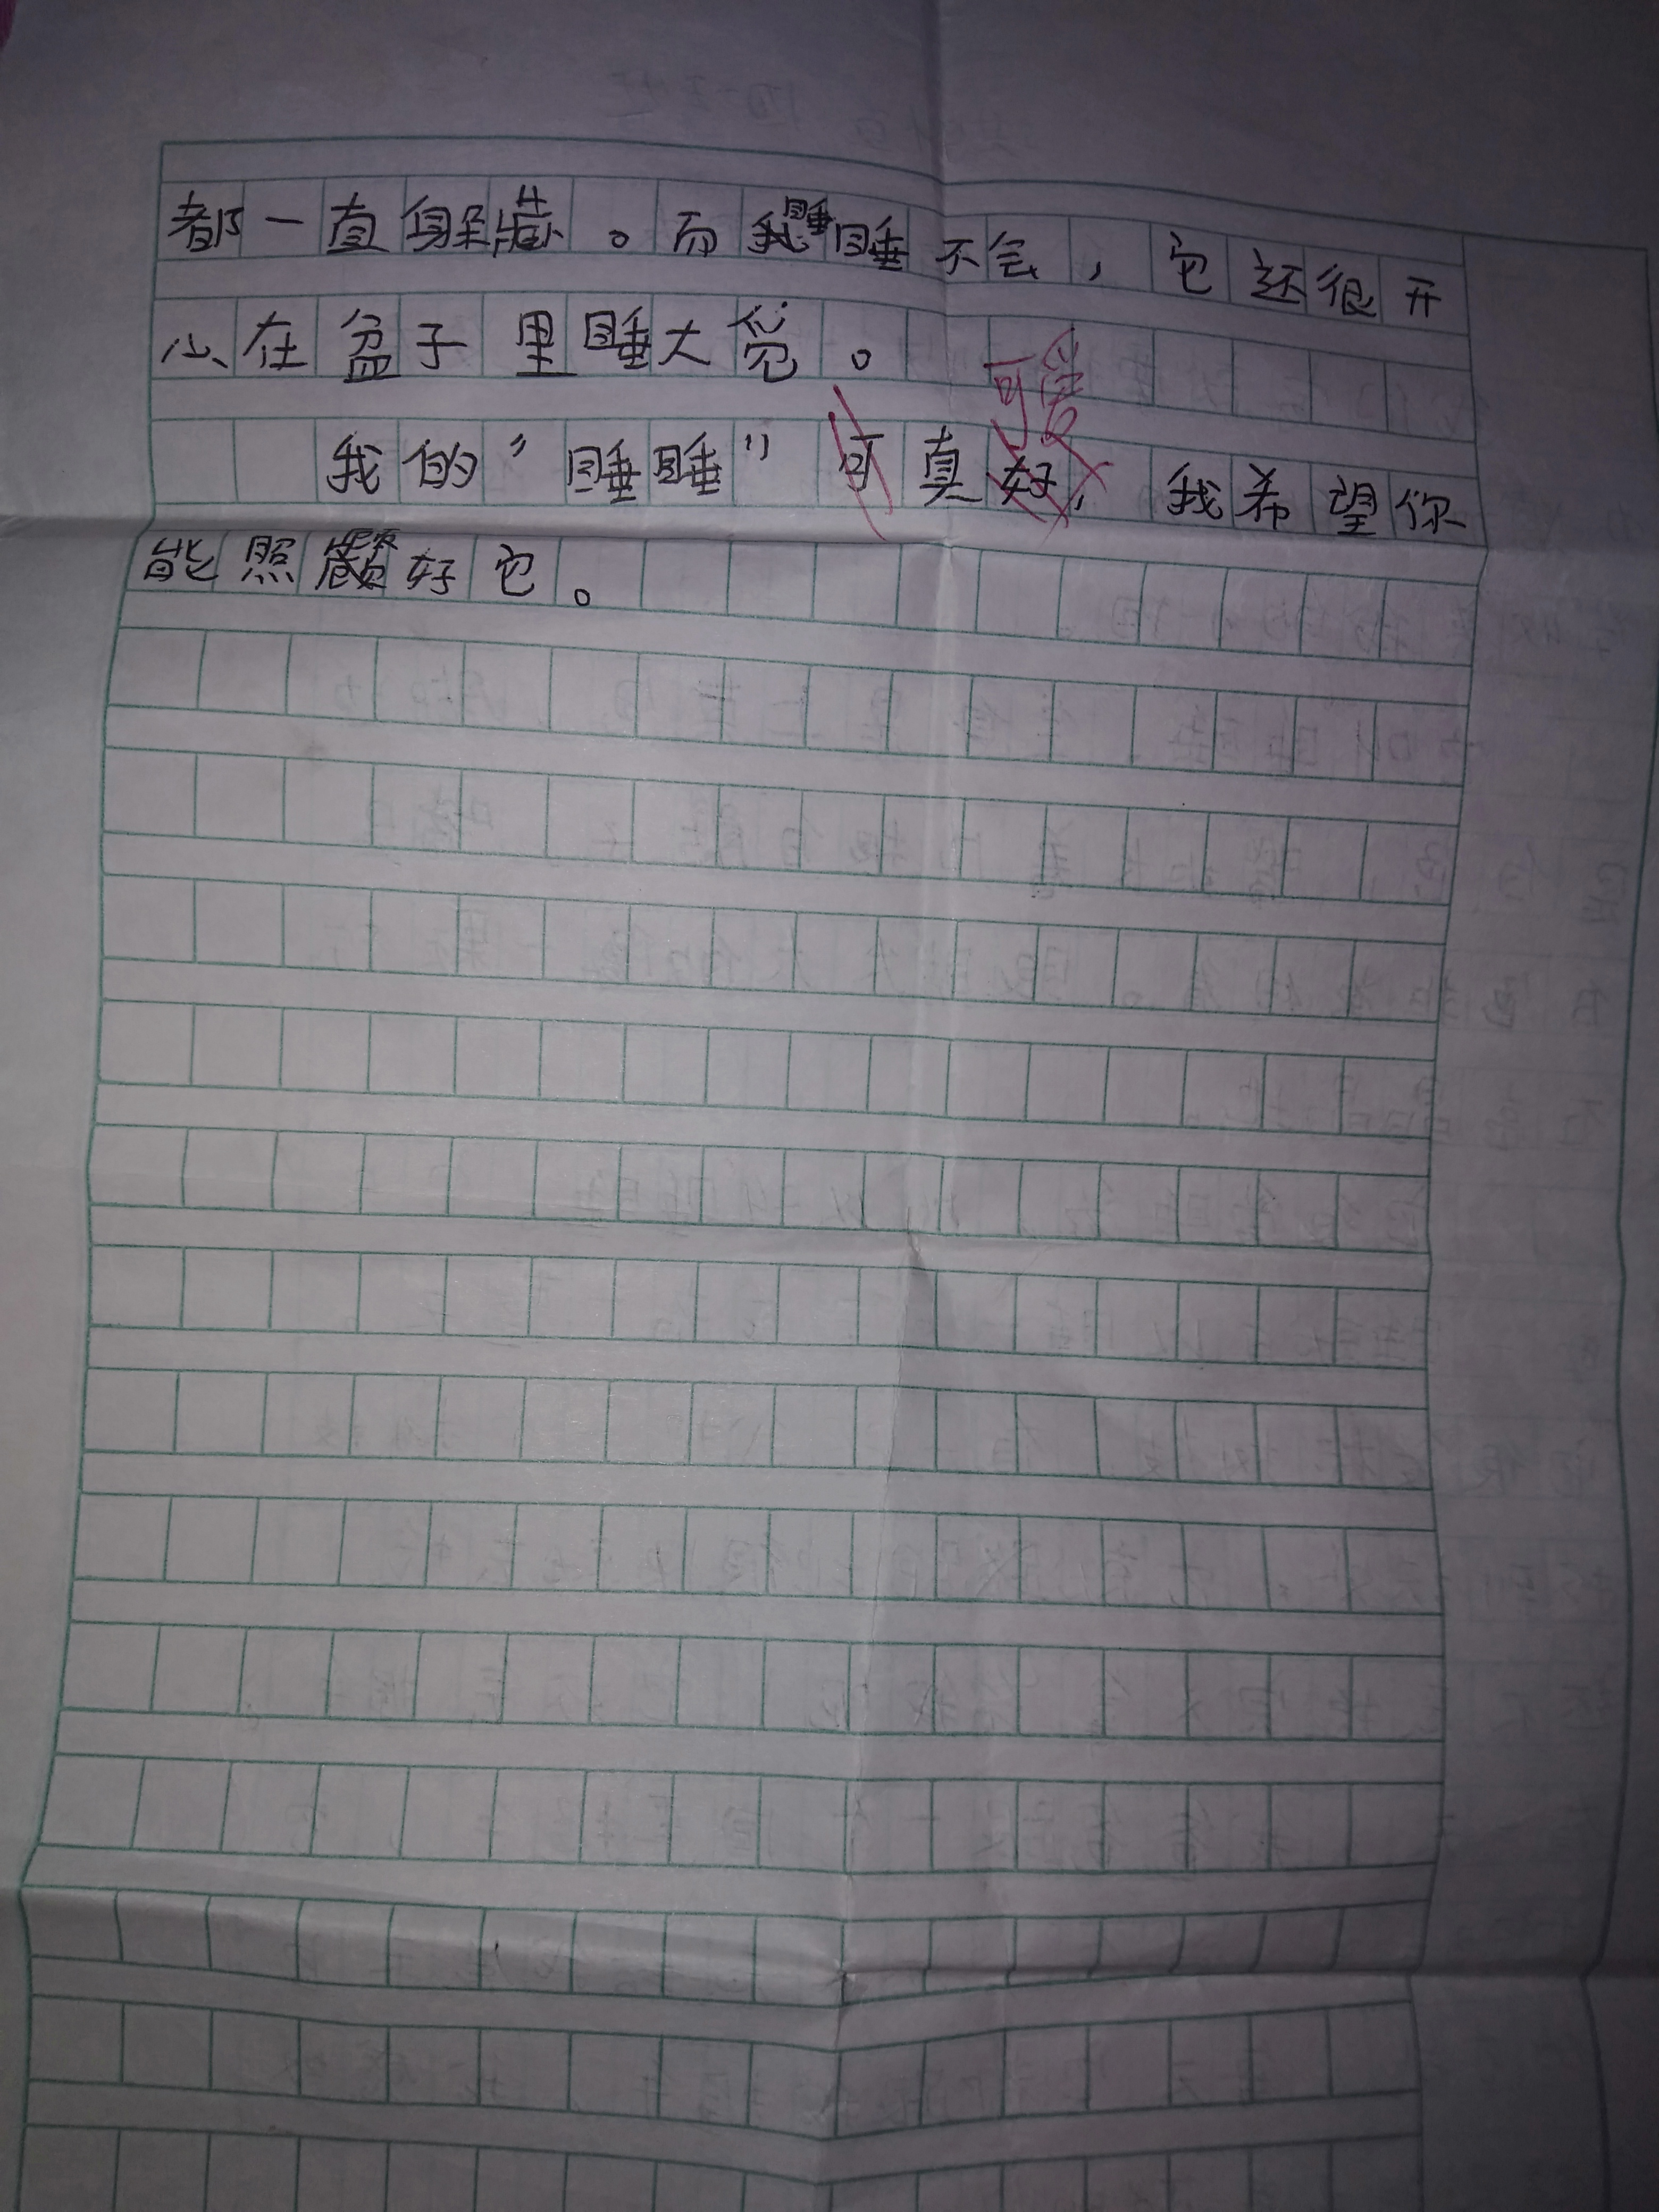 都一直躲藏。而我睡睡不会，它还很开
心在盆子里睡大觉。
可爱
我的“睡睡”可真好，我希望你
能照顾好它。